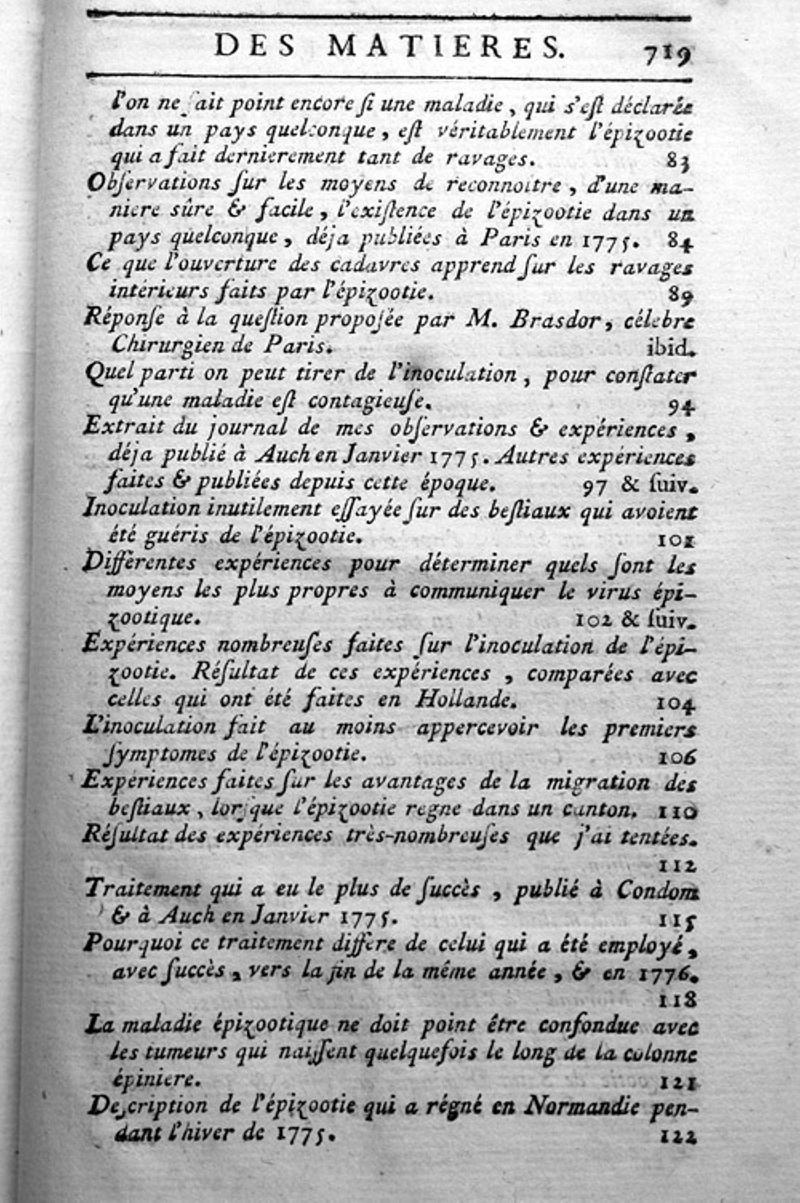 DES MATIERES. 719
l'on ne ſait point encore ſi une maladie, qui s'eſt déclarée
dans un pays quelconque, eſt véritablement l'épizootie
qui a fait dernierement tant de ravages. 83
Obſervations ſur les moyens de reconnoître, d'une ma-
niere sûre & facile, l'exiſtence de l'épizootie dans un
pays quelconque, déja publiées à Paris en 1775. 84
Ce que l'ouverture des cadavres apprend ſur les ravages
intérieurs faits par l'épizootie. 89
Réponſe à la queſtion propoſée par M. Brasdor, célebre
Chirurgien de Paris. ibid.
Quel parti on peut tirer de l'inoculation, pour conſtater
qu'une maladie eſt contagieuſe. 94
Extrait du journal de mes obſervations & expériences,
déja publié à Auch en Janvier 1775. Autres expériences
faites & publiées depuis cette époque. 97 & ſuiv.
Inoculation inutilement eſſayée ſur des beſtiaux qui avoient
été guéris de l'épizootie. 101
Différentes expériences pour déterminer quels ſont les
moyens les plus propres à communiquer le virus épi-
zootique. 102 & ſuiv.
Expériences nombreuſes faites ſur l'inoculation de l'épi-
zootie. Réſultat de ces expériences, comparées avec
celles qui ont été faites en Hollande. 104
L'inoculation fait au moins appercevoir les premiers
ſymptomes de l'épizootie. 106
Expériences faites ſur les avantages de la migration des
beſtiaux, lorſque l'épizootie regne dans un canton. 110
Réſultat des expériences très-nombreuſes que j'ai tentées.
112
Traitement qui a eu le plus de ſuccès, publié à Condom
& à Auch en Janvier 1775. 115
Pourquoi ce traitement differe de celui qui a été employé,
avec ſuccès, vers la fin de la même année, & en 1776.
118
La maladie épizootique ne doit point être confondue avec
les tumeurs qui naiſſent quelquefois le long de la colonne
épiniere. 121
Deſcription de l'épizootie qui a régné en Normandie pen-
dant l'hiver de 1775. 122